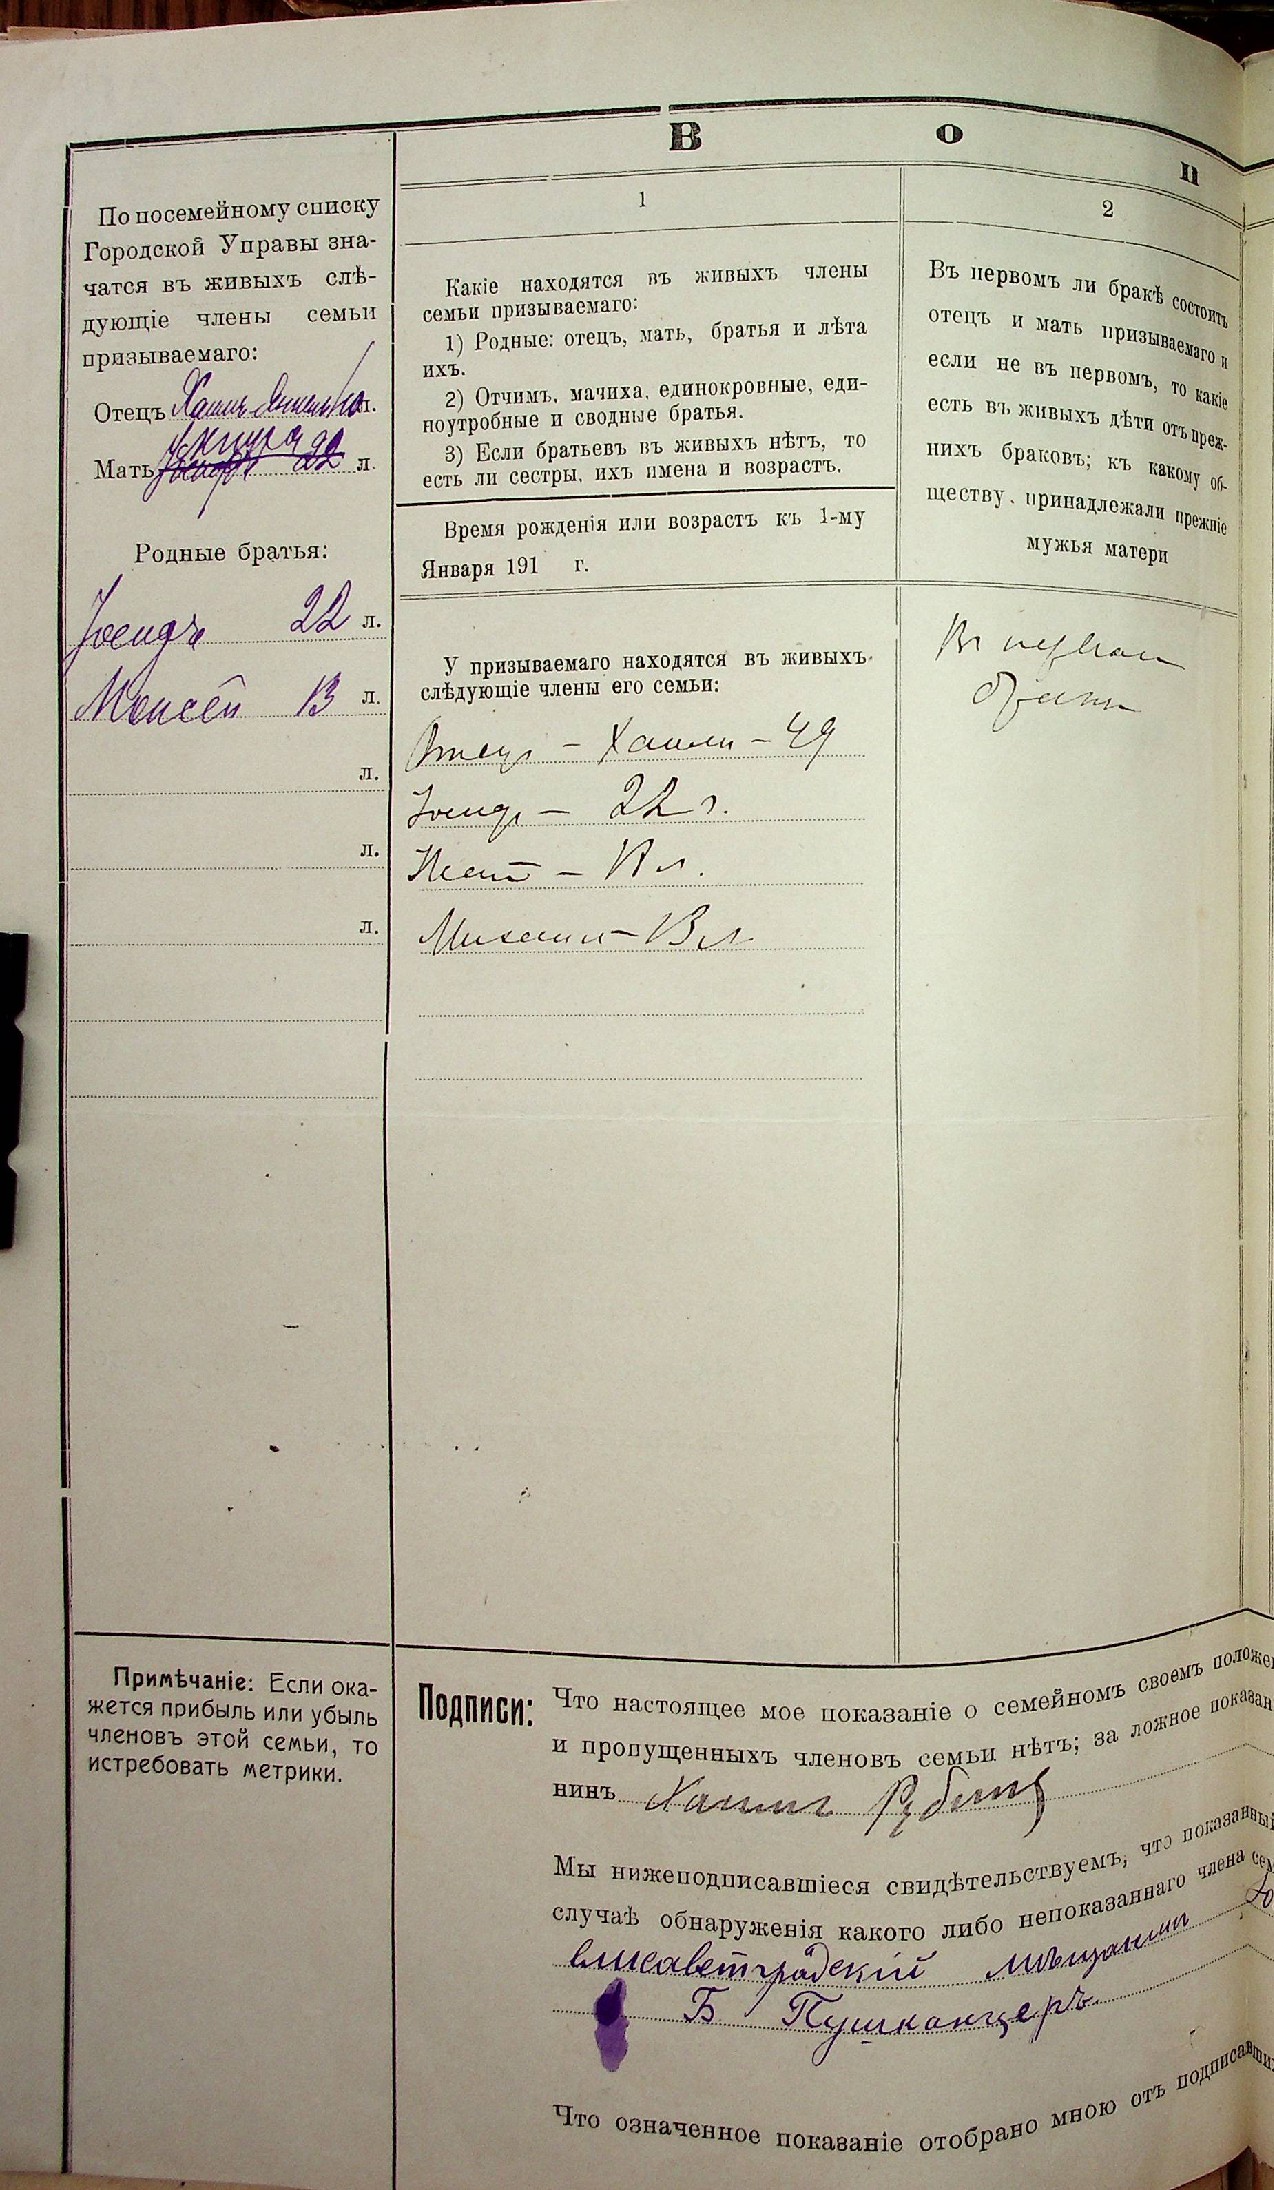 В о п
По посемейному списку
Городской Управы зна-
чатся въ живыхъ слѣ-
дующіе члены семьи
призываемаго:
Отецъ Хаимъ л.
Мать 22 л.
Родные братья:
Іосифъ 22 л.
Моисей 13 л.
л.
л.
л.
1
Какіе находятся въ живыхъ члены
семьи призываемаго:
1) Родные: отецъ, мать, братья и лѣта
ихъ.
2) Отчимъ, мачиха, единокровные, еди-
ноутробные и сводные братья.
3) Если братьевъ въ живыхъ нѣтъ, то
есть ли сестры, ихъ имена и возрастъ.
Время рожденія или возрастъ къ 1-му
Января 191 г.
У призываемаго находятся въ живыхъ
слѣдующіе члены его семьи:
Отецъ – Хаимъ – 49
Іосифъ – 22 г.
– л.
– 13 л.
2
Въ первомъ ли бракѣ состоитъ
отецъ и мать призываемаго и
если не въ первомъ, то какіе
есть въ живыхъ дѣти отъ преж-
нихъ браковъ; къ какому об-
ществу принадлежали прежніе
мужья матери
Въ первом
браки
Примѣчаніе: Если ока-
жется прибыль или убыль
членовъ этой семьи, то
истребовать метрики.
Подписи: Что настоящее мое показаніе о семейномъ своемъ положе
и пропущенныхъ членовъ семьи нѣтъ; за ложное показан
нинъ Хаимъ Рубин
Мы нижеподписавшіеся свидѣтельствуемъ, что показанный
случаѣ обнаруженія какого либо непоказаннаго члена сем
Елисаветградскій мѣщанинъ
Б Пушканцеръ
Что означенное показаніе отобрано мною отъ подписавши